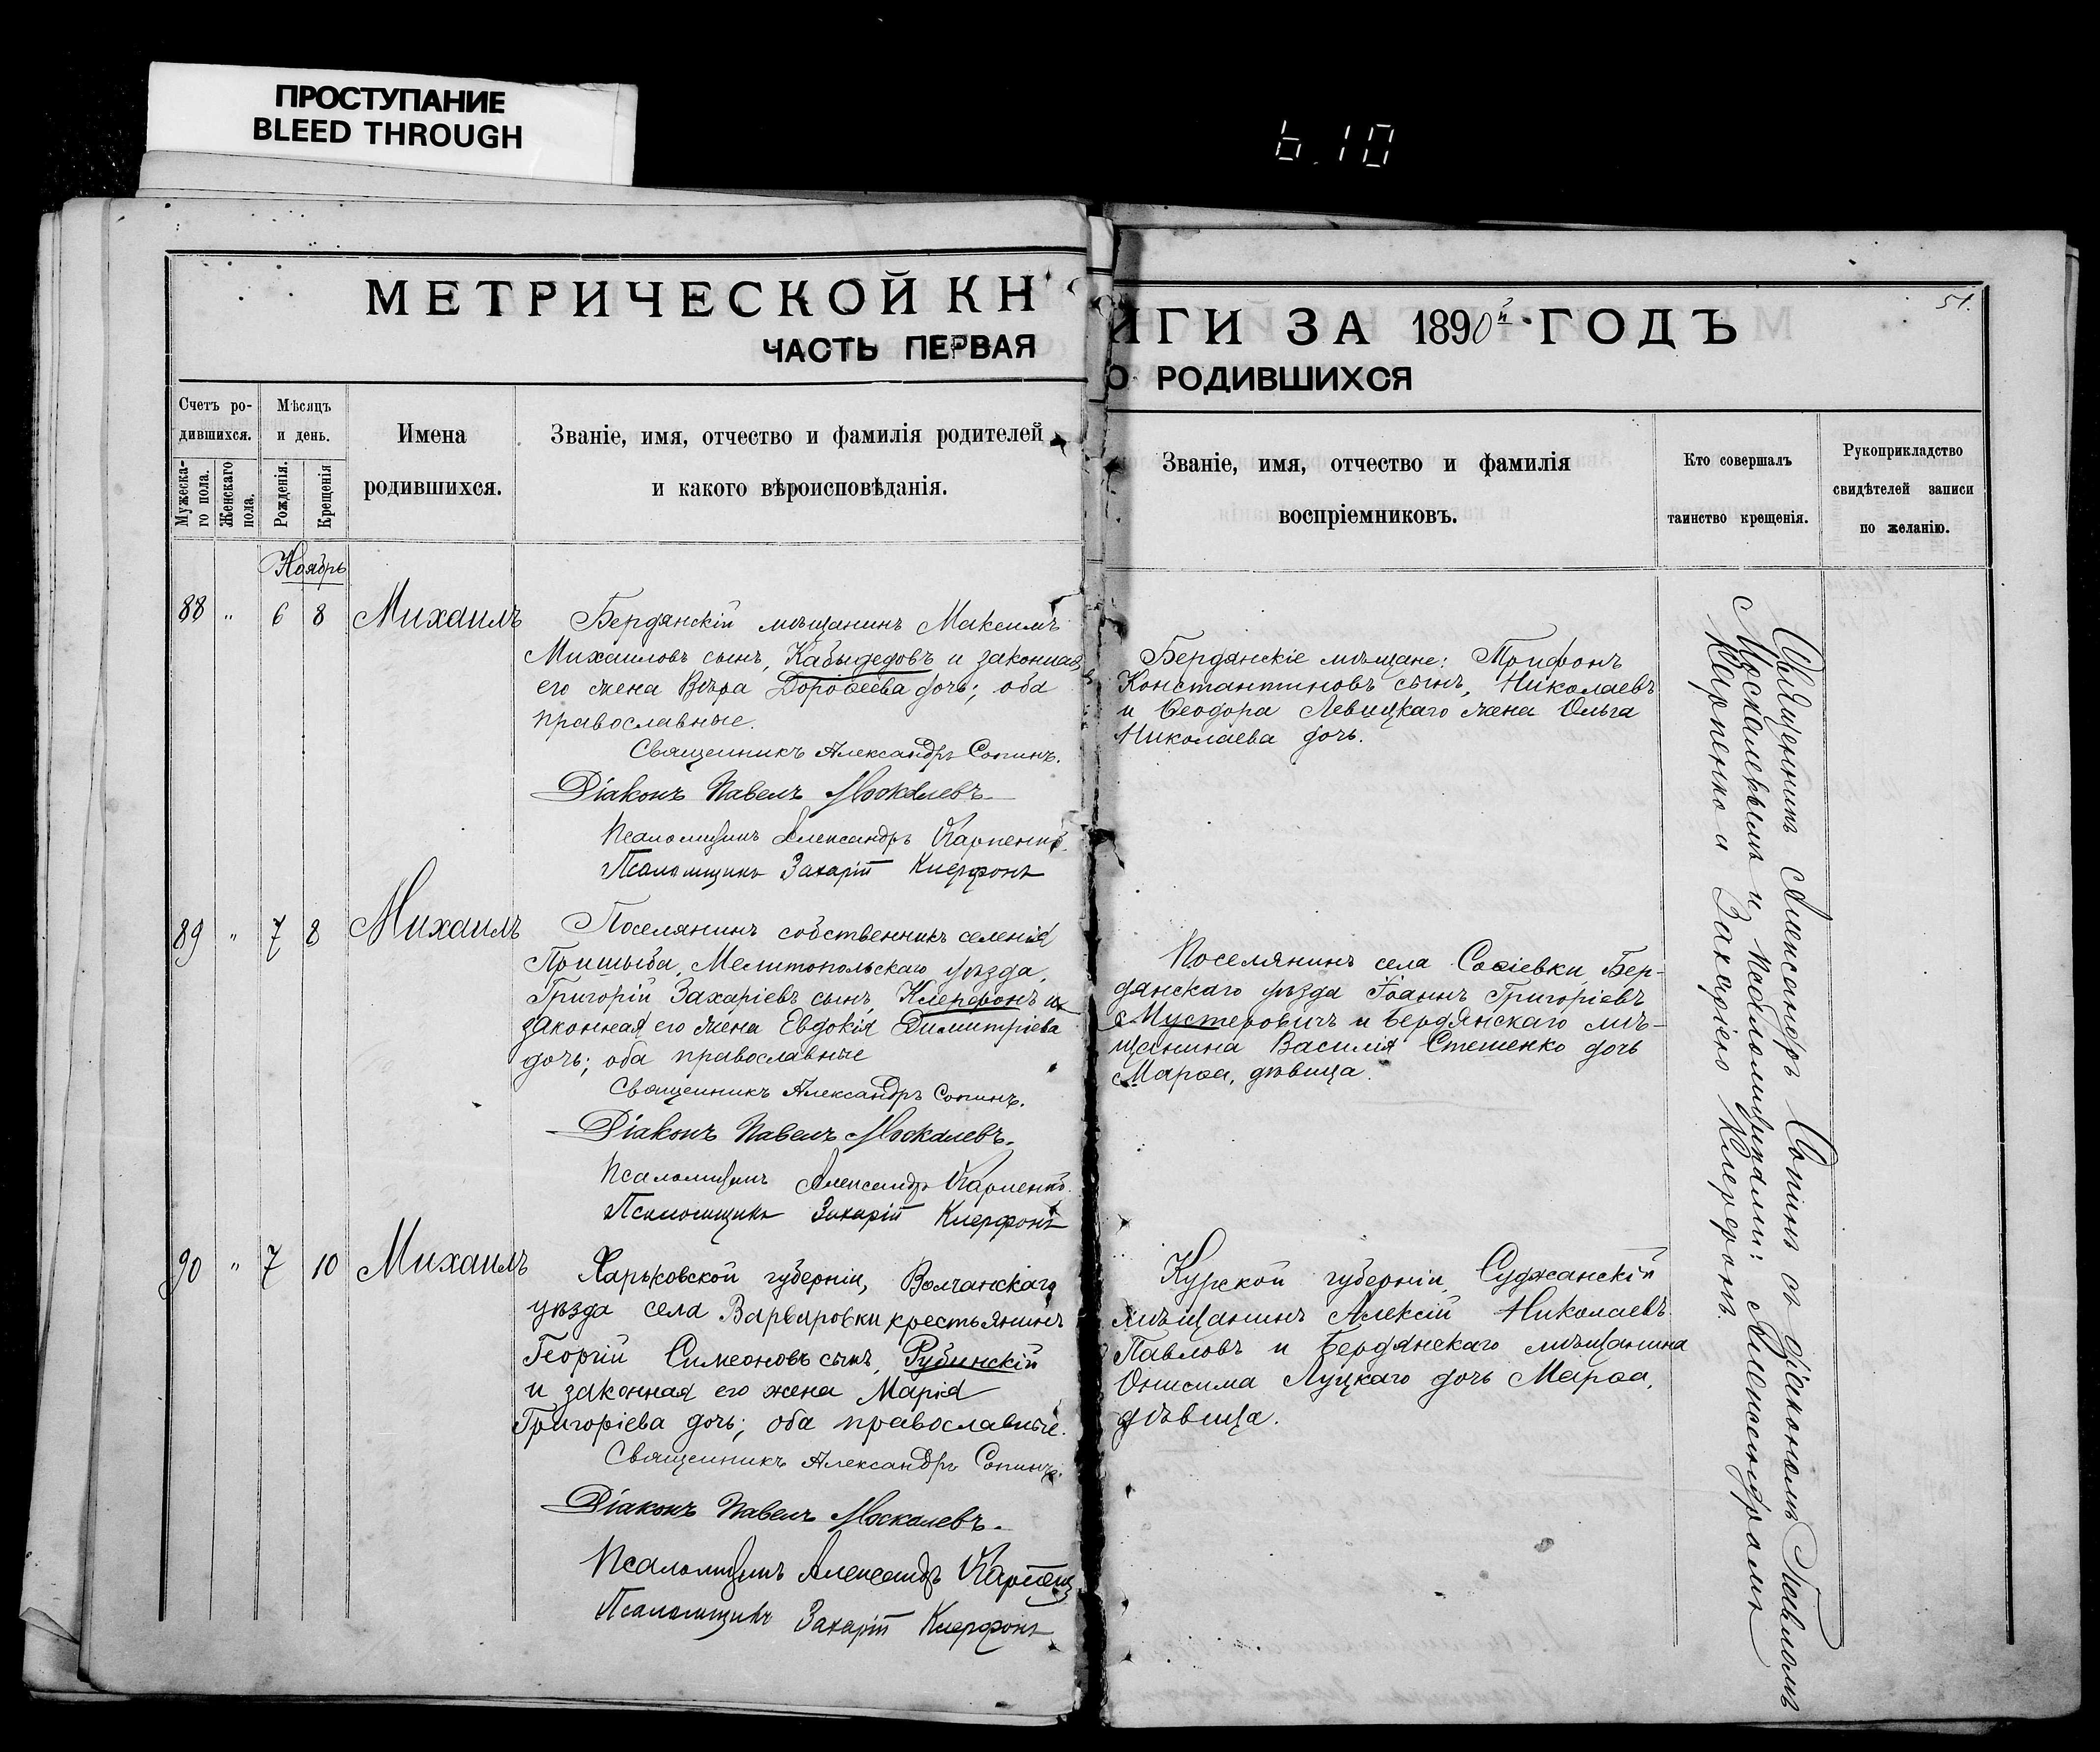 ПРОСТУПАНИЕ
BLEED THROUGH
6.10
МЕТРИЧЕСКОЙ КН
ЧАСТЬ ПЕРВАЯ
Счетъ ро-
дившихся.
Мужеска-
го пола.
Женскаго
пола.
Мѣсяцъ
и день.
Рожденія.
Крещенія
Имена
родившихся.
Званіе, имя, отчество и фамилія родителей
и какого вѣроисповѣданія.
Ноябрь
88 „ 6 8 Михаилъ
Бердянскій мѣщанинъ Максимъ
Михаиловъ сынъ, Кабыдедовъ и законная
его жена Вѣра Дороѳеева дочь; оба
православные.
Священникъ Александръ Сопинъ.
Діаконъ Павелъ Москалевъ.
Псаломщикъ Александръ Карпенко.
Псаломщикъ Захарій Клерфонъ
89 „ 7 8 Михаилъ
Поселянинъ собственникъ селенія
Пришыба, Мелитопольскаго уѣзда,
Григорій Захаріевъ сынъ, Клерфонъ и
законная его жена Евдокія Димитріева
дочь; оба православные
Священникъ Александръ Сопинъ.
Діаконъ Павелъ Москалевъ.
Псаломщикъ Александръ Карпенко.
Псаломщикъ Захарій Клерфонъ
90 „ 7 10 Михаилъ
Харьковской губерніи, Волчанскаго
уѣзда села Варваровки крестьянинъ
Георгій Симеоновъ сынъ, Рубинскій
и законная его жена Марія
Григоріева дочь; оба православные.
Священникъ Александръ Сопинъ.
Діаконъ Павелъ Москалевъ.
Псаломщикъ Александръ Карпенк
Псаломщикъ Захарій Клерфонъ
51.
ИГИ ЗА 1890й ГОДЪ
О РОДИВШИХСЯ
Званіе, имя, отчество и фамилія
воспріемниковъ.
Кто совершалъ
таинство крещенія.
Рукоприкладство
свидѣтелей записи
по желанію.
Бердянскіе мѣщане: Трифонъ
Константиновъ сынъ, Николаевъ
и Ѳеодора Левицкаго жена Ольга
Николаева дочь.
Поселянинъ села Софіевки, Бер-
дянскаго уѣзда Іоаннъ Григоріевъ
Мустеровичъ и бердянскаго мѣ-
щанина Василія Стешенко дочь
Марѳа, дѣвица.
Курской губерніи, Суджанскій
мѣщанинъ Алексій Николаевъ
Павловъ и бердянскаго мѣщанина
Онисима Луцкаго дочь Марѳа,
дѣвица.
Священникъ Александръ Сопинъ съ діакономъ Павломъ
Москалевымъ и псаломщиками: Александромъ
Карпенко и Захаріею Клерфонъ.